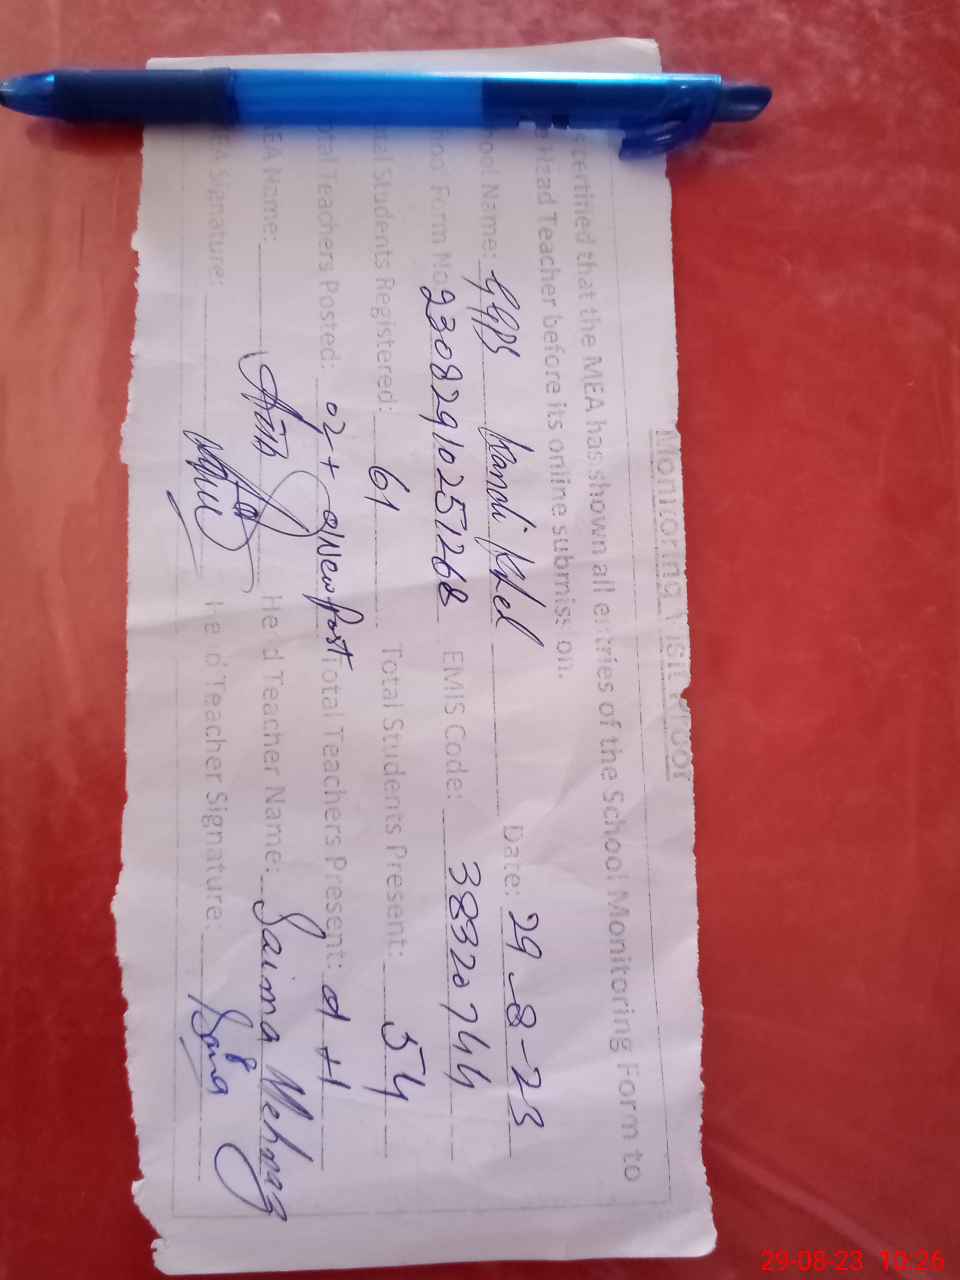 Monitoring Visit
certified that the MEA has shown all entries of the School Monitoring Form to
Head Teacher before its online submission.
ool Name: GGPS Kandi Khel Date: 29-8-23
Form No 230829102571268 EMIS Code: 38320744
al Students Registered: 61 Total Students Present: 54
tal Teachers Posted: 02+ New Post Total Teachers Present: 01 +1
EA Name: Head Teacher Name: Saima Mehnaz
EA Signature: Head Teacher Signature: Saima
29-08-23 10:26